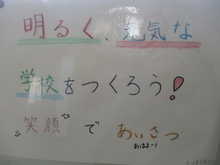 明るく、元気な
学校をつくろう!
"笑顔"であいさつ
おはよー!